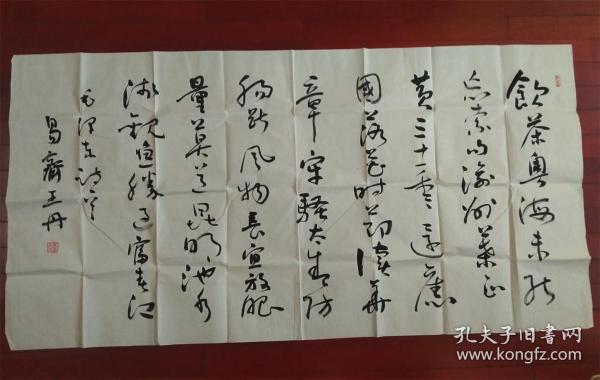 飲茶粤海未能
忘索句渝州葉正
黄三十一年還舊
國落花時節讀華
章牢騷太盛防
腸斷風物長宜放眼
量莫道昆明池水
淺觀魚勝過富春江
毛澤東詩
昌齋王丹
孔夫子旧书网
www.kongfz.com